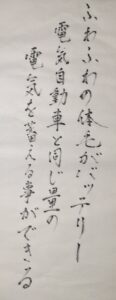 ふわふわの体毛がバッテリー
電気自動車と同じ量の
電気を蓄える事ができる